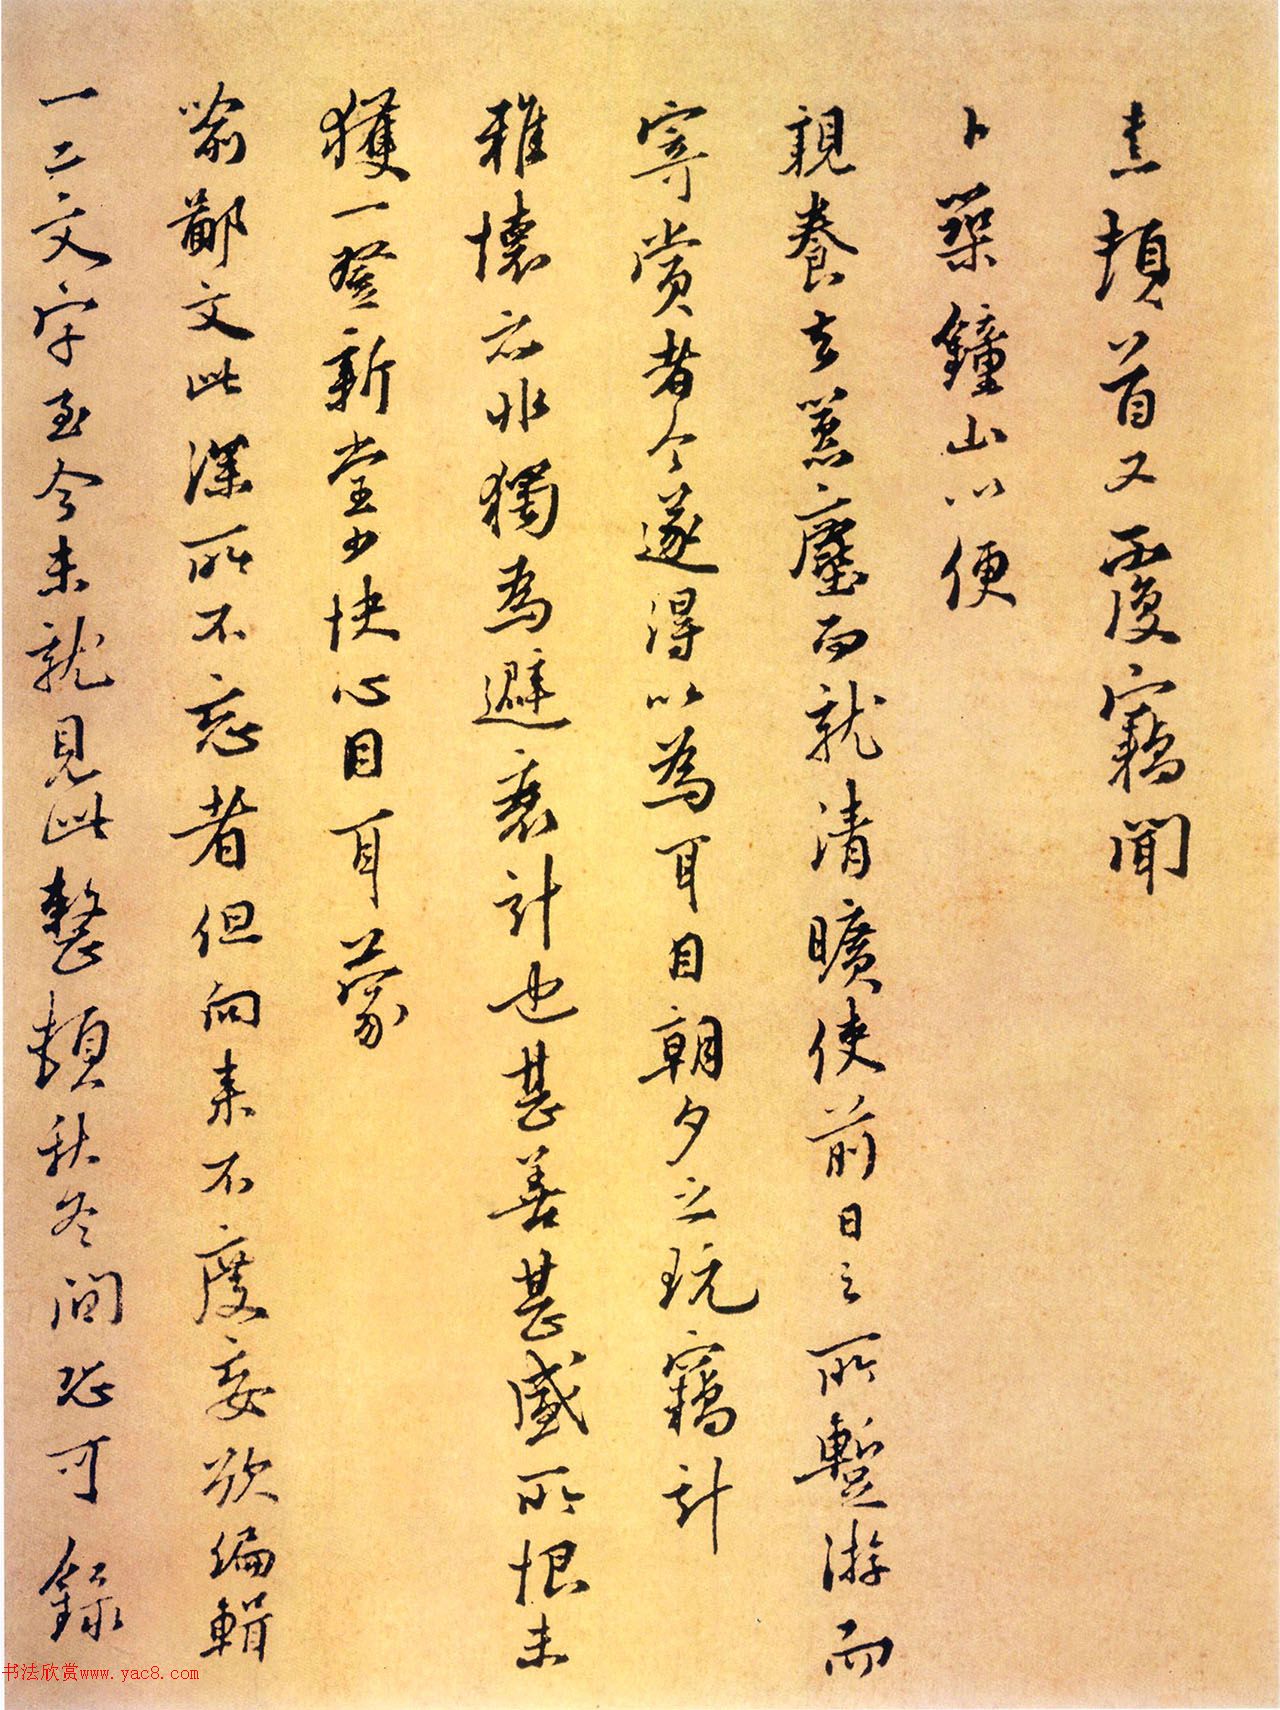 熹頓首又覆竊聞
卜築鐘山以便
親養去囂塵而就清曠使前日之所暫游而
寄賞者今遂得以為耳目朝夕之玩竊計
雅懷亦非獨為避衰計也甚善甚盛所恨未
獲一登新堂少快心目耳蒙
喻鄙文此深所不忘者但向來不度妄欲編輯
一二文字至今未就見此整頓秋冬間恐可錄
书法欣赏www.yac8.com